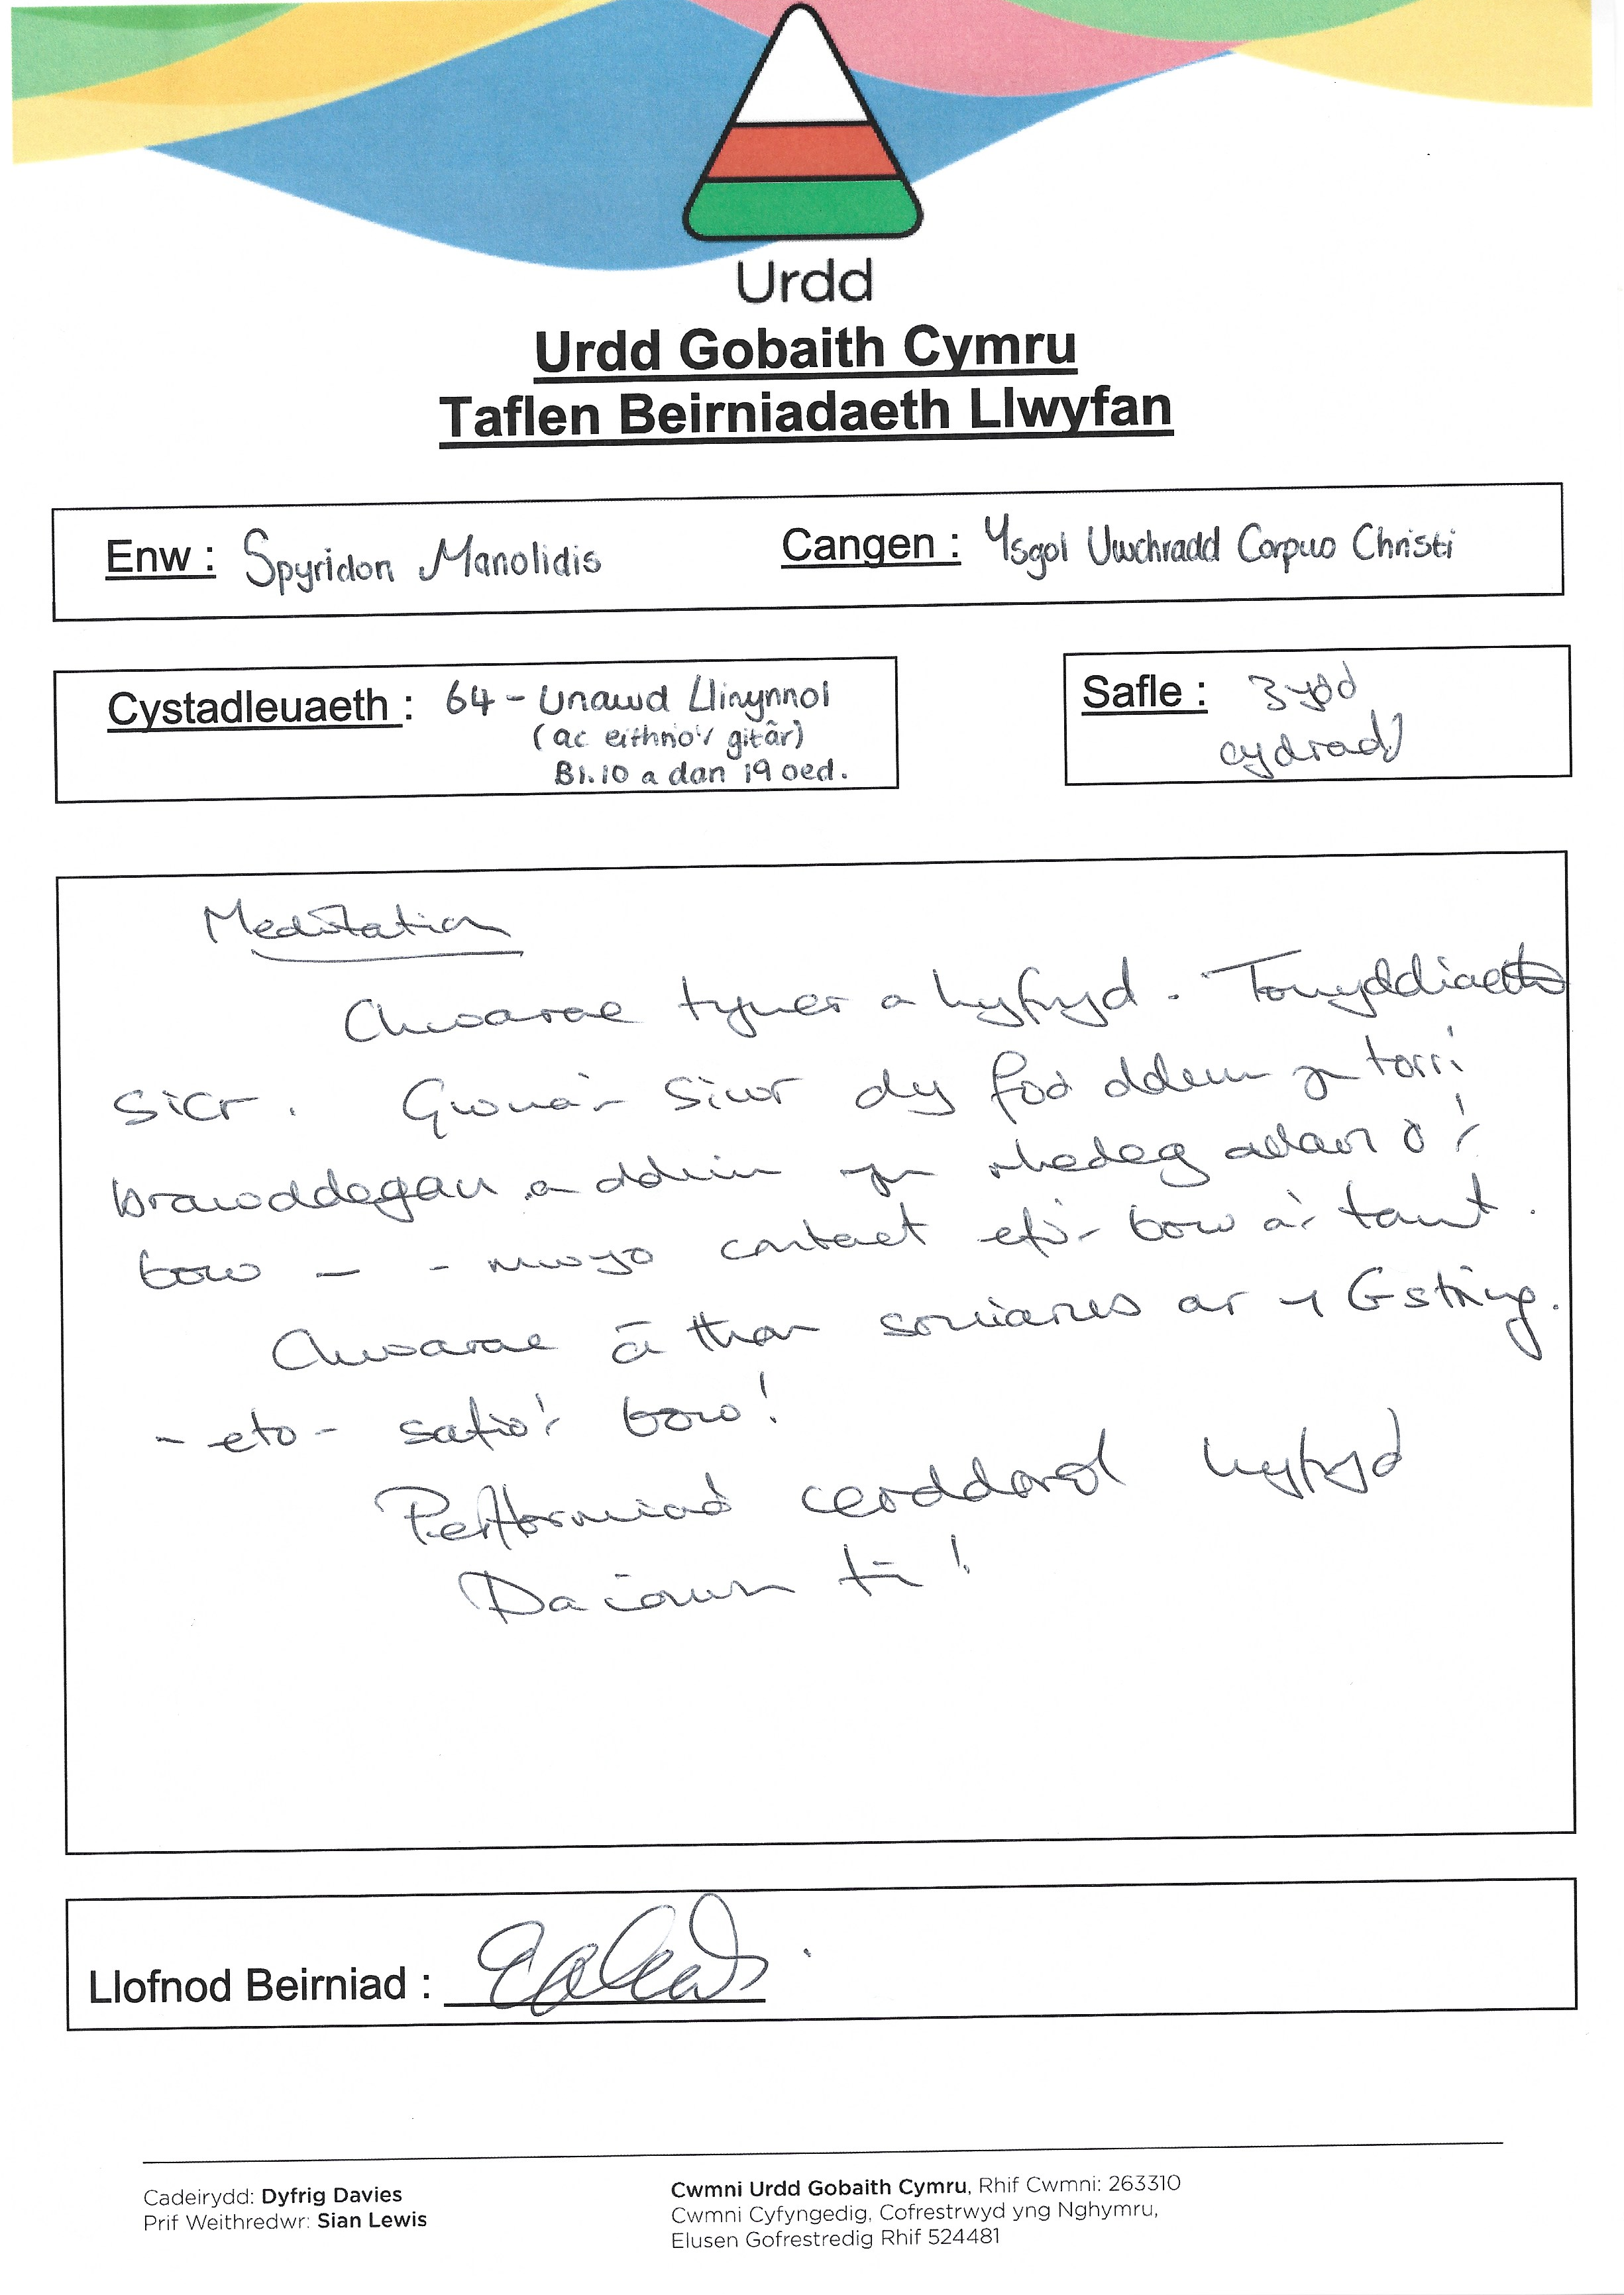 Urdd
Urdd Gobaith Cymru
Taflen Beirniadaeth Llwyfan
Enw : Spyridon Manolidis
Cangen : Ysgol Uwchradd Corpus Christi
Cystadleuaeth : 64 - Unawd Llinynnol
(ac eithrio'r gitâr)
Bl.10 a dan 19 oed.
Safle : 3ydd
cydradd
Meditation
Chwarae tyner a hyfryd. Tonyddiaeth
sicr. Gwna'n siwr dy fod ddim yn torri
brawddegau a ddim yn rhedeg allan o'r
bow - - mwy o contact efo'r bow a'r tant.
Chwarae â thon soniarus ar y G string.
- eto - safio'r bow!
Perfformiad cerddorol hyfryd
Da iawn ti!
Llofnod Beirniad :
Cadeirydd: Dyfrig Davies
Prif Weithredwr: Sian Lewis
Cwmni Urdd Gobaith Cymru, Rhif Cwmni: 263310
Cwmni Cyfyngedig, Cofrestrwyd yng Nghymru,
Elusen Gofrestredig Rhif 524481